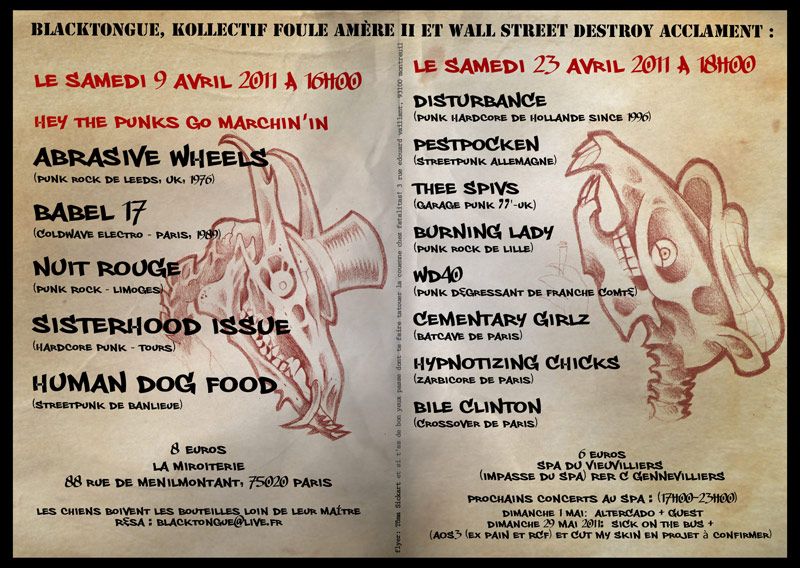 BLACKTONGUE, KOLLECTIF FOULE AMÈRE II ET WALL STREET DESTROY ACCLAMENT :
LE SAMEDI 9 AVRIL 2011 À 16H00
HEY THE PUNKS GO MARCHIN'IN
ABRASIVE WHEELS
(PUNK ROCK DE LEEDS, UK, 1976)
BABEL 17
(COLDWAVE ELECTRO - PARIS, 1989)
NUIT ROUGE
(PUNK ROCK - LIMOGES)
SISTERHOOD ISSUE
(HARDCORE PUNK - TOURS)
HUMAN DOG FOOD
(STREETPUNK DE BANLIEUE)
8 EUROS
LA MIROITERIE
88 RUE DE MENILMONTANT, 75020 PARIS
LES CHIENS BOIVENT LES BOUTEILLES LOIN DE LEUR MAÎTRE
RÉSA : BLACKTONGUE@LIVE.FR
flyer: Thom Sickart et si t'as de bon yeux passe donc te faire tatouer la couenne chez fatalitas! 3 rue edouard vaillant, 93100 montreuil
LE SAMEDI 23 AVRIL 2011 À 18H00
DISTURBANCE
(PUNK HARDCORE DE HOLLANDE SINCE 1996)
PESTPOCKEN
(STREETPUNK ALLEMAGNE)
THEE SPIVS
(GARAGE PUNK 77'-UK)
BURNING LADY
(PUNK ROCK DE LILLE)
WD40
(PUNK DÉGRESSANT DE FRANCHE COMTÉ)
CEMENTARY GIRLZ
(BATCAVE DE PARIS)
HYPNOTIZING CHICKS
(ZARBICORE DE PARIS)
BILE CLINTON
(CROSSOVER DE PARIS)
6 EUROS
SPA DU VIEUVILLIERS
(IMPASSE DU SPA) RER C GENNEVILLIERS
PROCHAINS CONCERTS AU SPA : (17H00-23H00)
DIMANCHE 1 MAI: ALTERCADO + GUEST
DIMANCHE 29 MAI 2011: SICK ON THE BUS +
(AOS3 (EX PAIN ET RCF) ET CUT MY SKIN EN PROJET À CONFIRMER)